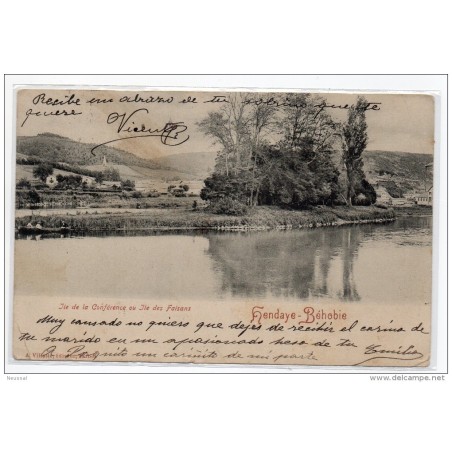 Recibe un abrazo de tu sobrino que te
quiere
Vicente
Ile de la Conférence ou Ile des Faisans
Hendaye-Béhobie
Muy cansado no quiero que dejes de recibir el carino de
tu marido en un apasionado beso de tu Emilio
A Paquito un cariñito de mi parte
Neuneal
delcampe.net